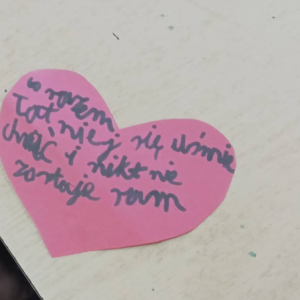 "razem
łatwiej się uśmie
chać i nikt nie
zostaje sam